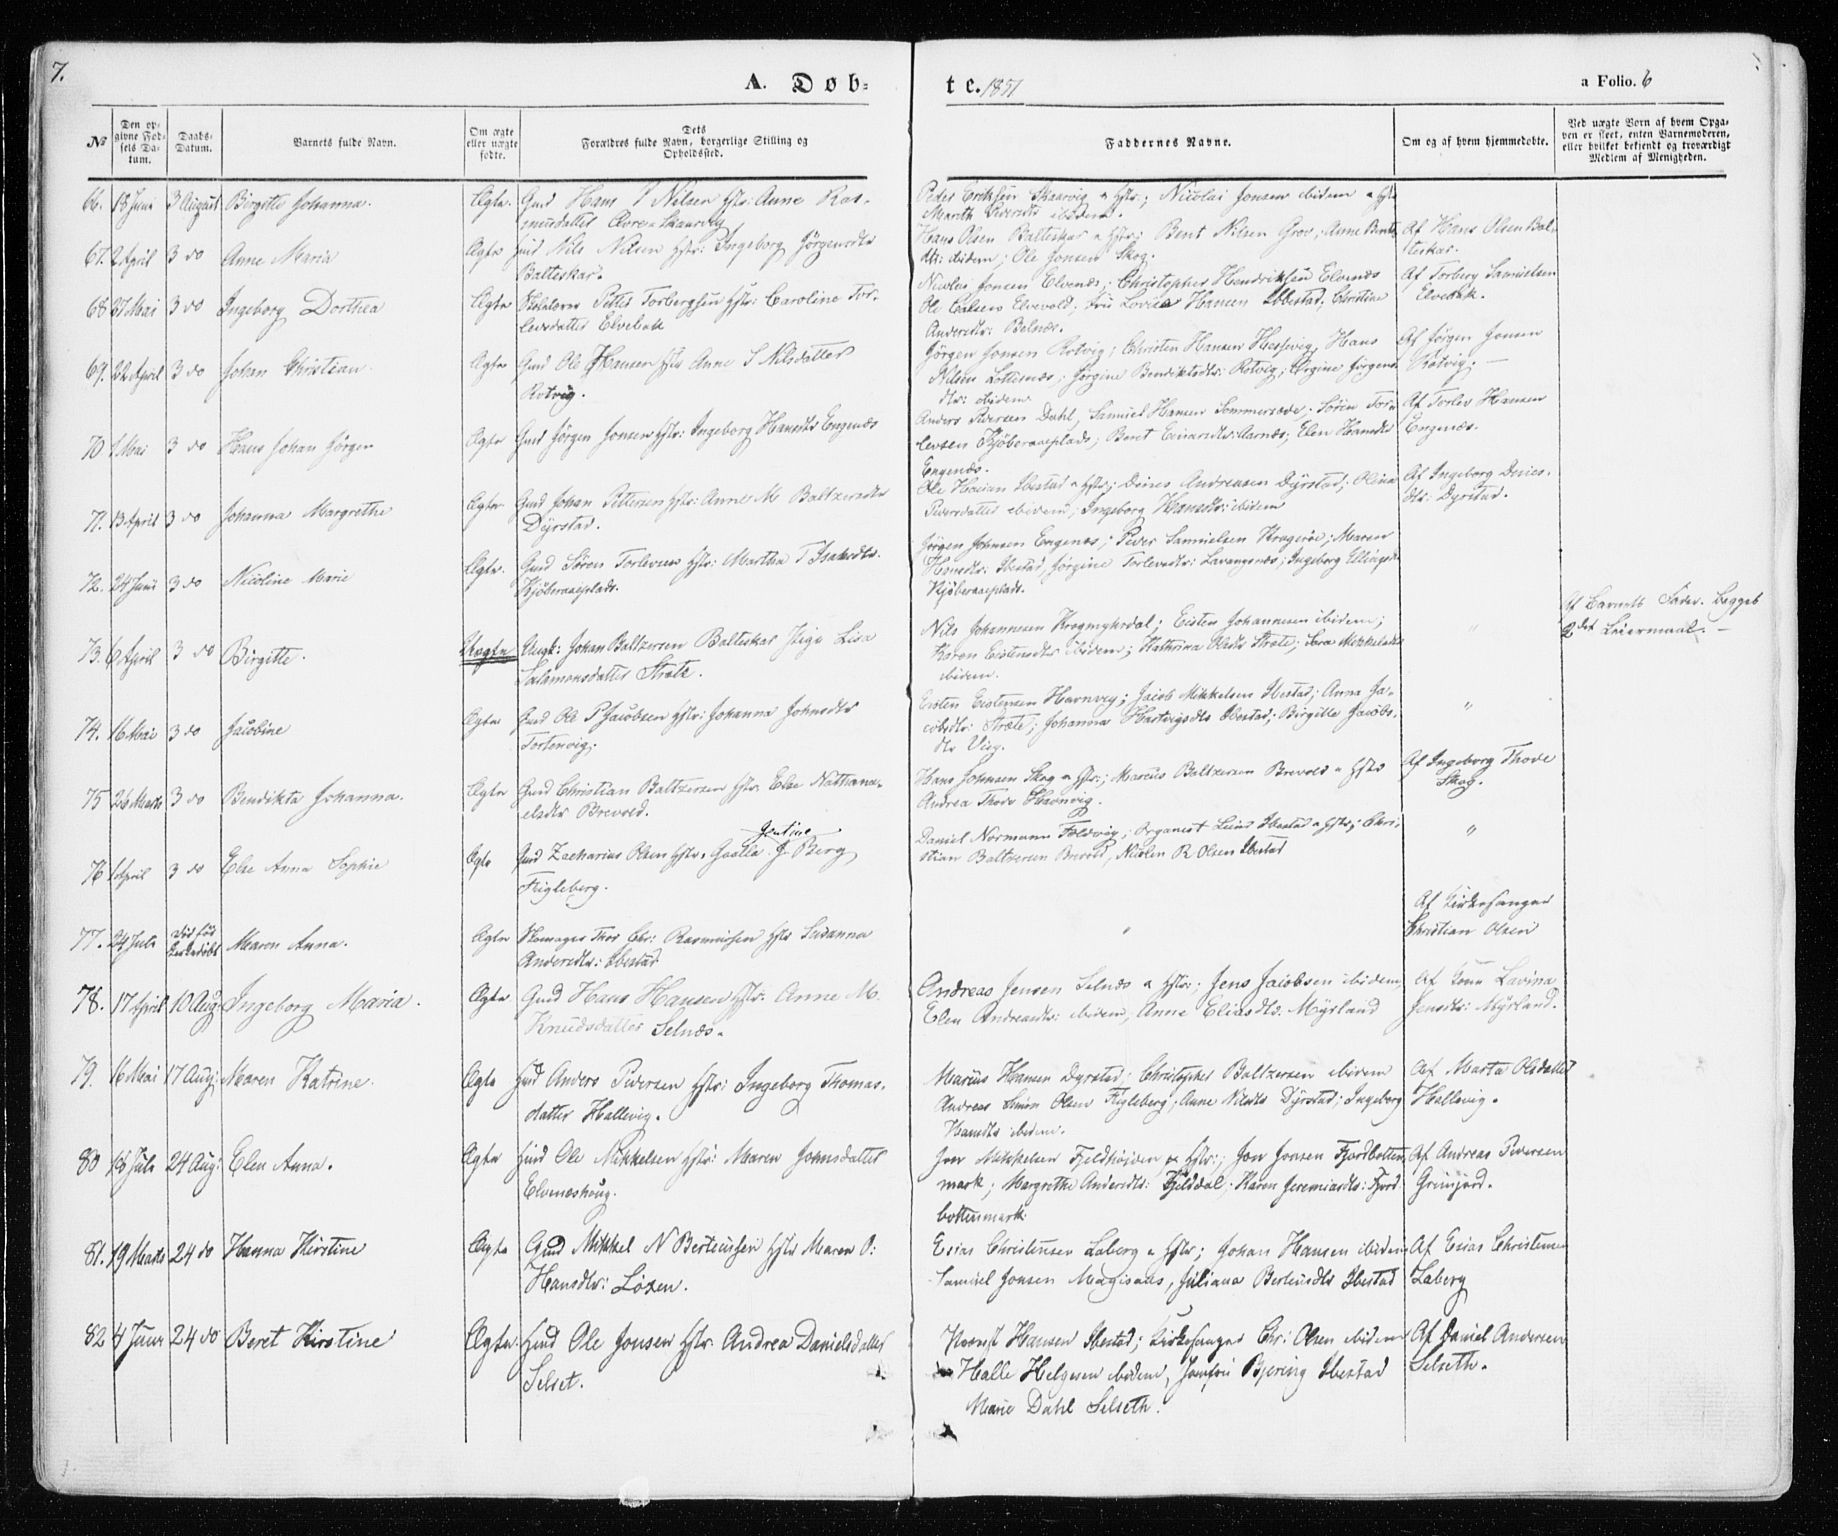 7.
A. Døb-
te. 1851
a Folio. 6
№
Den op-
givne Fød-
sels Da-
tum.
Daabs-
Datum.
Barnets fulde Navn.
Om ægte
eller uægte
fødte.
Dets
Forældres fulde Navn, borgerlige Stilling og
Opholdssted.
Faddernes Navne.
Om og af hvem hjemmedøbte.
Ved uægte Børn af hvem Opga-
ven er skeet, enten Barnemoderen,
eller hvilket bekjendt og troværdigt
Medlem af Menigheden.
66. 18 Juni 3 August Birgitte Johanna. Ægte. Gmd Hans P Nilsen Hstr: Anne Ras-
musdatter Øvre Skaarvig
Peder Eriksen Skaarvig & Hstr; Nicolai Jonsen ibidem & Hstr
Marith Pedersdtr ibidem.
67. 2 April 3 do Anne Maria Ægte Gmd Nils Nilsen Hstr: Ingeborg Jørgensdtr
Balteskar.
Hans Olsen Balteskar & Hstr; Bent Nilsen Grov, Anne Bents-
dtr: ibidem; Ole Jonsen Skog.
Af Hans Olsen Bal-
teskar.
68 27 Mai 3 do Ingeborg Dorthea Ægte Petter Torbergsen Hstr: Caroline Tor-
levsdatter Elvebak
Nicolai Jonsen Elvenæs; Christopher Hendriksen Elvenæs
Ole Carlsen Elvevold; Fru Lovise Hansen Ibbestad; Christine
Andersdtr: Belnæs.
Af Torberg Samuelsen
Elvebak.
69. 22 April 3 do Johan Christian. Ægte Gmd Ole Hansen Hstr Anne S Nilsdatter
Rotvig.
Jørgen Jonsen Rotvig; Christen Hansen Hessevig; Hans
Nilsen Lottenæs; Jørgine Bendiktsdtr: Rotvig; Ørgine Jørgens-
dtr: ibidem
Af Jørgen Jonsen
Rotvig. —
70 1 Mai 3 do Hans Johan Jørgen Ægte Gmd Jørgen Jonsen Hstr: Ingeborg Hansdtr Engenæs
Anders Pedersen Dahl, Samuel Hansen Sommersæde; Søren Tor-
levsen Kjøberaaeplads; Beret Einarsdtr: Aarnæs; Elen Hansdtr
Engenæs.
Af Torlev Hansen
Engenæs.
71. 13 April 3 do Johanna Margrethe Ægte. Gmd Johan Pettersen Hstr: Anne M Baltzersdtr
Dyrstad.
Ole Ibestad & Hstr; Deines Andreasen Dyrstad; Olina
Pedersdatter ibidem; Ingeborg Hansdtr: ibidem
Af Ingeborg Deines-
dtr: Dyrstad.
72. 24 Juni 3 do Nicoline Marie Ægte. Gmd Søren Torlevsen Hstr: Martha T Isaksdtr.
Kjøberaaeplads.
Jørgen Johnsen Engenæs; Peder Samuelsen Kragerøe; Maren
Hansdtr: Ibestad, Jørgine Torlevsdtr: Lavangsnæs; Ingeborg Ellingsdtr
Kjøberaaeplads.
73. 6 April 3 do Birgitte. Uægte Ungk: Johan Baltzersen Balteskar Pige Lisa
Salamonsdatter Stræte.
Nils Johannesen Krogmyhrdal; Eisten Johannesen ibidem;
Karen Eistensdtr ibidem; Kathrina Olsdtr Stræte; Sara Mikkelsdtr
ibidem.
"
Af Barnets Fader. Begges
2det Leiermaal. —
74. 16 Mai 3 do Jacobine Ægte Gmd Ole P Jacobsen Hstr: Johanna Johnsdtr
Tortenvig.
Eisten Eistensen Havnvig; Jacob Mikkelsen Ibestad; Anna Ja-
cobsdtr: Stræte; Johanna Hartvigsdtr Ibestad; Birgitte Jacobs-
dtr Viig.
"
75 26 Marts 3 do Bendikta Johanna. Ægte Gmd Christian Baltzersen Hstr. Else Nathana-
elsdtr Brevold.
Hans Johnsen Skog & Hstr:; Marcus Baltzersen Brevold & Hstr
Andrea Thode Havnvig.
Af Ingeborg Thode
Skog.
76 1 April 3 do Else Anna Sophie Ægte Gmd Zacharias Olsen Hstr. Gentine
J. Berg
Figleberg.
Daniel Normann Foldvig; Organist Ibestad & Hstr; Chri-
stian Baltzersen Brevold, R Olsen Ibestad
"
77. 24 Juli Maren Anna. Ægte Skomager Thor Chr: Rasmussen Hstr Susanna
Andersdtr: Ibestad
"
Af Kirkesanger
Christian Olsen
78. 17 April 10 Aug Ingeborg Maria. Ægte Gmd Hans Hansen Hstr: Anne M.
Knudsdatter Selnæs.
Andreas Jensen Selnæs & Hstr; Jens Jacobsen ibidem
Elen Andreasdtr: ibidem, Anne Eliasdtr: Myrland
Af Kone Lavina
Jensdtr: Myrland.
79. 16 Mai 17 Aug: Maren Katrine. Ægte Gmd Anders Pedersen Hstr: Ingeborg Thomas-
datter Hallevig.
Marcus Hansen Dyrstad; Christopher Baltzersen ibidem
Andreas Simon Olsen Figleberg; Anne Nilsdtr Dyrstad; Ingeborg
Hansdtr ibidem.
Af Marta Olsdatter
Hallevig.
80 18 Juli 24 Aug: Elen Anna. Ægte Gmd Ole Mikkelsen Hstr: Maren Johnsdatter
Elvneshoug.
Iver Mikkelsen Fjeldhøiden & Hstr:; Jon Jonsen Fjordbotten
mark; Margrethe Andersdtr: Fjelddal; Karen Jeremiasdtr: Fjord
bottenmark
Af Andreas Pedersen
Grimjord.
81. 19 Marts 24 do Hanna Kirstine Ægte Gmd Mikkel N Berteussen Hstr Maren O:
Hansdtr: Løxen.
Esias Christensen Laberg & Hstr; Johan Hansen ibidem
Samuel Jonsen Magisaas, Juliana Berteusdtr Ibestad
Af Esias Christensen
Laberg
82 4 Juni 24 do Beret Kirstine Ægte. Gmd Ole Jonsen Hstr. Andrea Danielsdatter
Selset.
Provst Hansen Ibestad; Kirkesanger Chr: Olsen ibidem
Halle Helgesen ibidem, Jomfru Bjering Ibestad
Marie Dahl Selseth.
Af Daniel Andersen
Selseth.